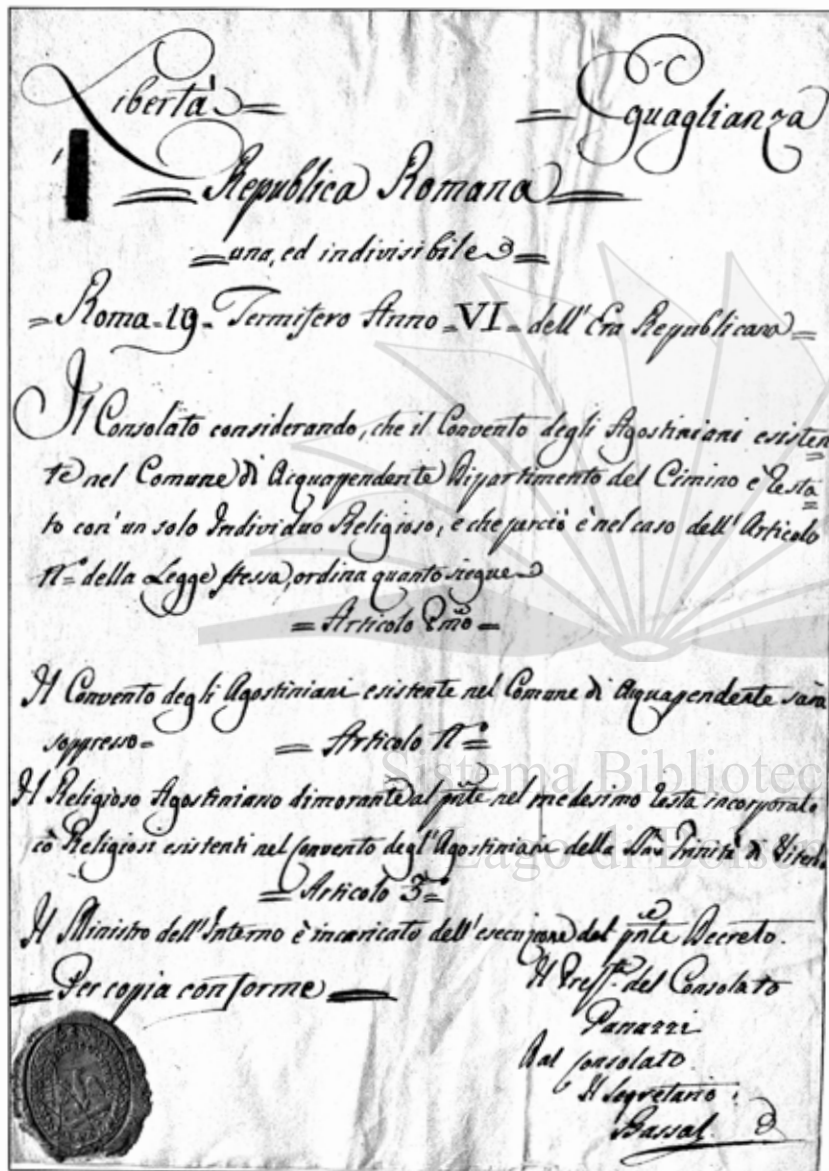 Libertà Eguaglianza
Republica Romana
una, ed indivisibile
Roma 19 Termifero Anno VI dell'Era Republicana
Il Consolato considerando, che il Convento degli Agostiniani esisten
te nel Comune di Acquapendente Dipartimento del Cimino è resta
to con un solo Individuo Religioso, e che perciò è nel caso dell'Articolo
della Legge stessa, ordina quanto siegue
Articolo Pmo
Il Convento degli Agostiniani esistente nel Comune di Aquapendente sarà
soppresso = Articolo II°
Il Religioso Agostiniano dimorante al pnte nel medesimo resta incorporato
cò Religiosi esistenti nel Convento degl'Agostiniani della SSma Trinità di Viterbo
Articolo 3°
Il Ministro dell'Interno è incaricato dell'esecuzione del pnte Decreto.
Per copia conforme
Il Presste del Consolato
Panazzi
Dal Consolato
Il Segretario
Bassal
Sistema Bibliotec
Lago di Bolsen